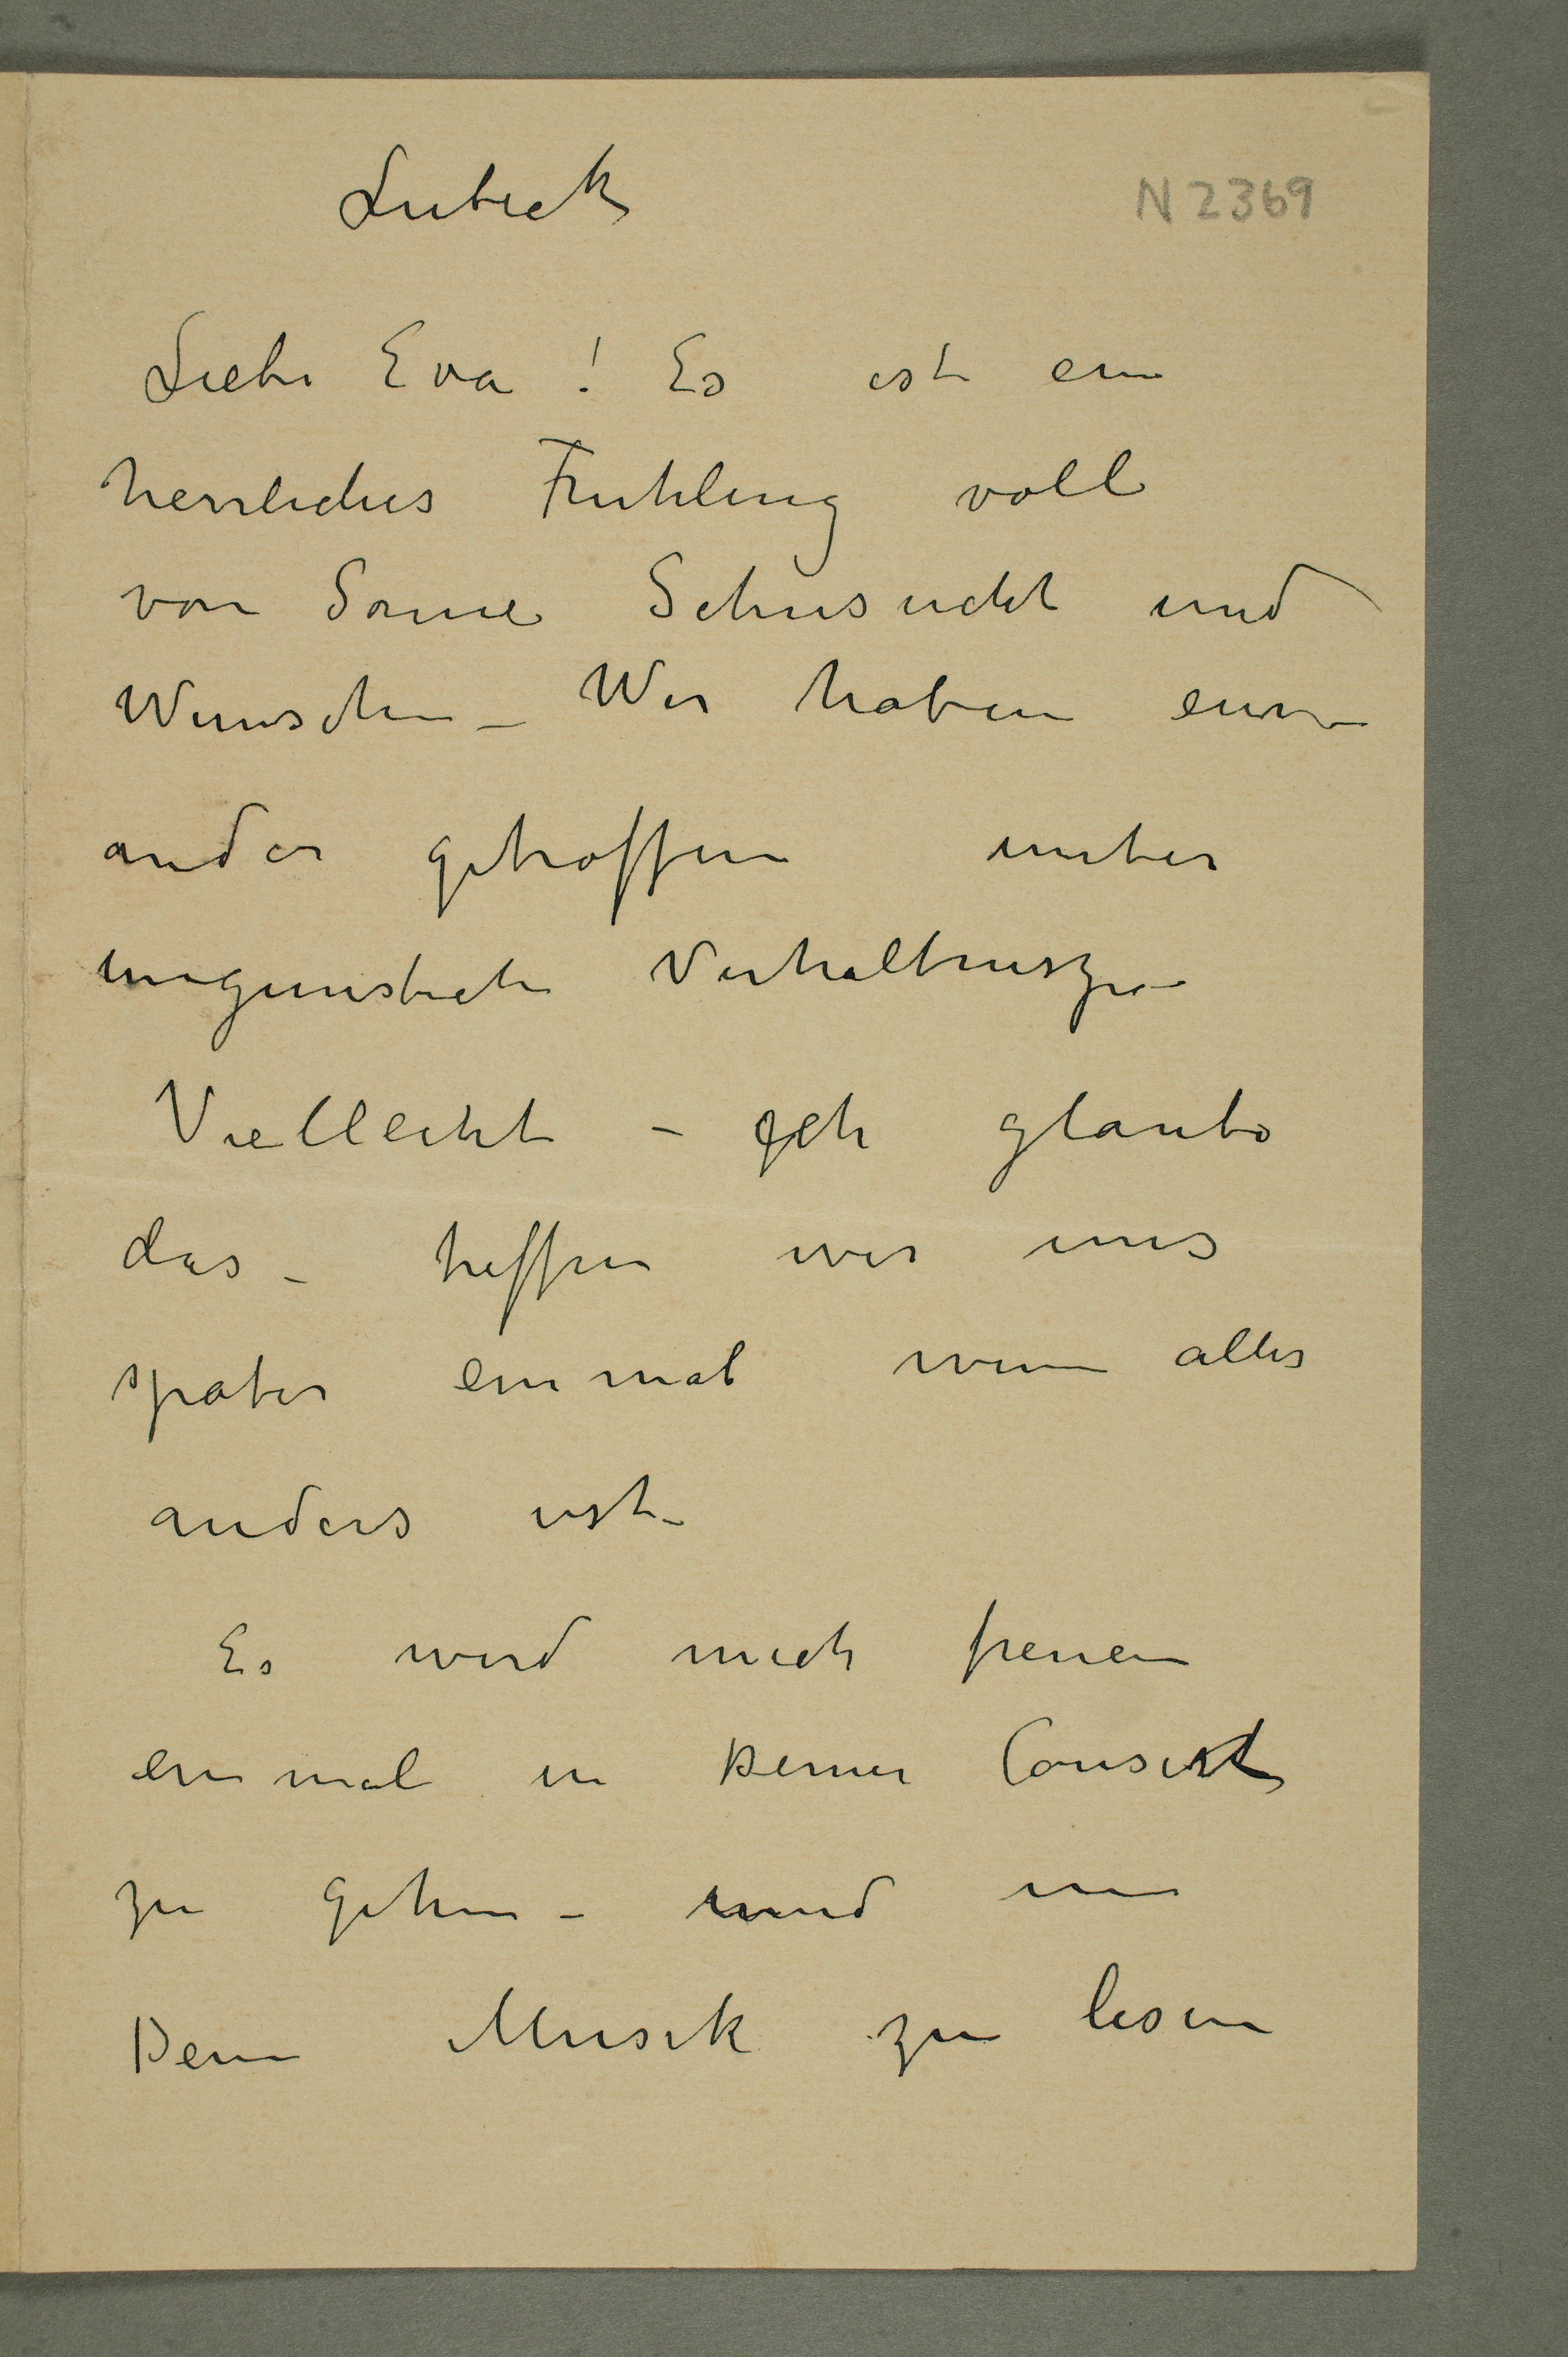 Lubeck
N 2369
Liebe Eva! Es ist ein
herrliches Fruhling voll
von Sonne Sehnsucht und
Wunschen – Wir haben ein
ander getroffen unter
ungunstiche Verhaltniszen
Vielleicht – Ich glaube
das – treffen wir uns
spater einmal wenn alles
anders ist –
Es wird mich freuen
einmal in Deiner Consert
zu gehen – und in
Dein Musik zu lesen